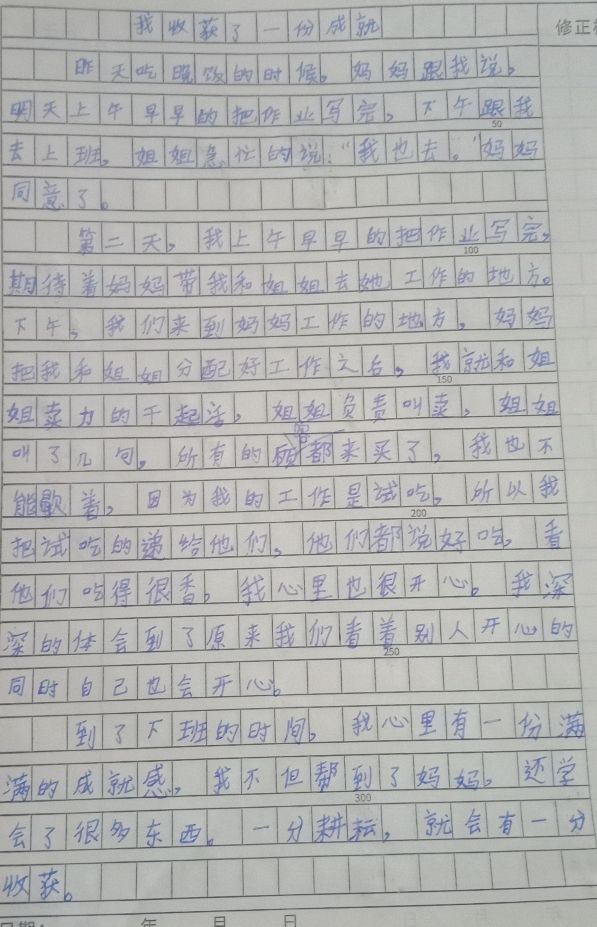 我收获了一份成就
修正
昨天吃晚饭的时候。妈妈跟我说。
明天上午早早的把作业写完，下午跟我
50
去上班。姐姐急忙的说：“我也去。”妈妈
同意了。
第二天，我上午早早的把作业写完，
100
期待着妈妈带我和姐姐去她工作的地方。
下午，我们来到妈妈工作的地方，妈妈
把我和姐姐分配好工作之后，我就和姐
150
姐卖力的干起活，姐姐负责叫卖，姐姐
叫了几句，所有的顾客都来买了，我也不
能歇着，因为我的工作是试吃，所以我
200
把试吃的递给他们，他们都说好吃，看
他们吃得很香，我心里也很开心。我深
深的体会到了原来我们看着别人开心的
250
同时自己也会开心。
到了下班的时间，我心里有一份满
满的成就感，我不但帮到了妈妈，还学
300
会了很多东西。一分耕耘，就会有一分
收获。
日期： 年 月 日